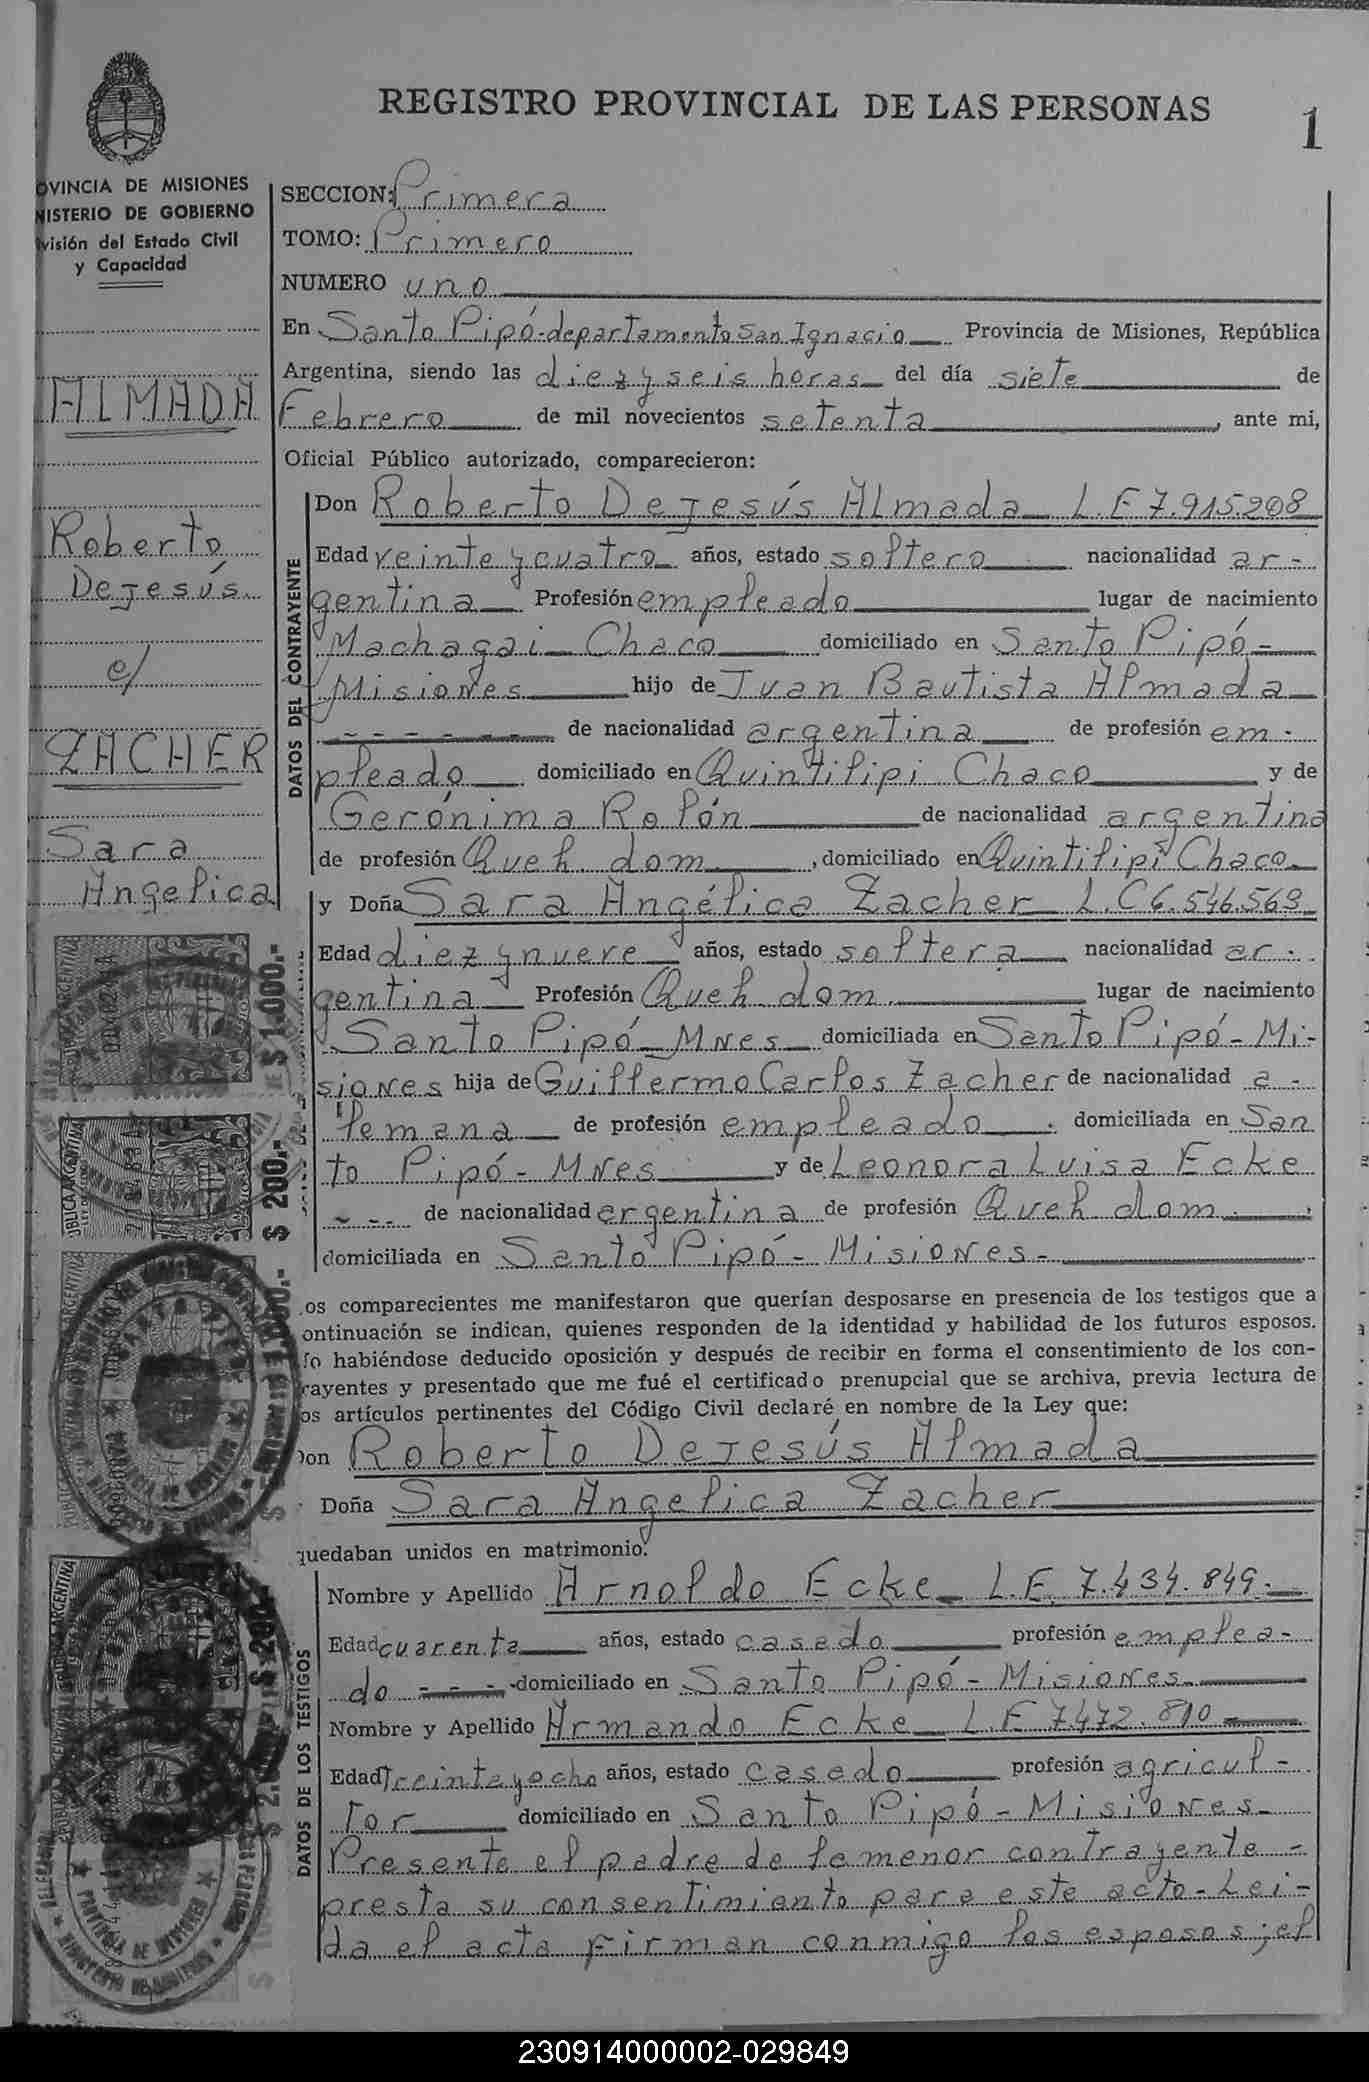 REGISTRO PROVINCIAL DE LAS PERSONAS
1
OVINCIA DE MISIONES
NISTERIO DE GOBIERNO
visión del Estado Civil
y Capacidad
ALMADA
Roberto
DeJesús
c/
ZACHER
Sara
Angelica
SECCION: Primera
TOMO: Primero
NUMERO uno
En Santo Pipó-departamento San Ignacio Provincia de Misiones, República
Argentina, siendo las diez y seis horas del día siete de
Febrero de mil novecientos setenta, ante mi,
Oficial Público autorizado, comparecieron:
DATOS DEL CONTRAYENTE
Don Roberto DeJesús Almada L.E 7.915.208
Edad veinte y cuatro años, estado soltero nacionalidad ar-
gentina Profesión empleado lugar de nacimiento
Machagai-Chaco domiciliado en Santo Pipó-
Misiones hijo de Juan Bautista Almada
de nacionalidad argentina de profesión em-
pleado domiciliado en Quintilipi Chaco y de
Gerónima Rolón de nacionalidad argentina
de profesión Queh. dom., domiciliado en Quintilipi Chaco
y Doña Sara Angélica Zacher L.C 6.546.563
Edad diez y nueve años, estado soltera nacionalidad ar-
gentina Profesión Queh. dom. lugar de nacimiento
Santo Pipó-MNes domiciliada en Santo Pipó-Mi-
siones hija de Guillermo Carlos Zacher de nacionalidad a-
lemana de profesión empleado domiciliada en San
to Pipó-MNes y de Leonora Luisa Ecke
--- de nacionalidad argentina de profesión Queh dom.
domiciliada en Santo Pipó-Misiones-
os comparecientes me manifestaron que querían desposarse en presencia de los testigos que a
ontinuación se indican, quienes responden de la identidad y habilidad de los futuros esposos.
o habiéndose deducido oposición y después de recibir en forma el consentimiento de los con-
rayentes y presentado que me fué el certificado prenupcial que se archiva, previa lectura de
os artículos pertinentes del Código Civil declaré en nombre de la Ley que:
on Roberto DeJesús Almada
Doña Sara Angelica Zacher
quedaban unidos en matrimonio.
DATOS DE LOS TESTIGOS
Nombre y Apellido Arnoldo Ecke L.E. 7.434.849.-
Edad cuarenta años, estado casado profesión emplea-
do --- domiciliado en Santo Pipó-Misiones-
Nombre y Apellido Armando Ecke L.E 7472.810-
Edad treinta y ocho años, estado casado profesión agricul-
tor domiciliado en Santo Pipó-Misiones-
Presente el padre de la menor contrayente-
presta su consentimiento para este acto-Lei-
da el acta firman conmigo los esposos; el
$ 1.000.-
$ 200.-
PROVINCIA DE MISIONES
230914000002-029849